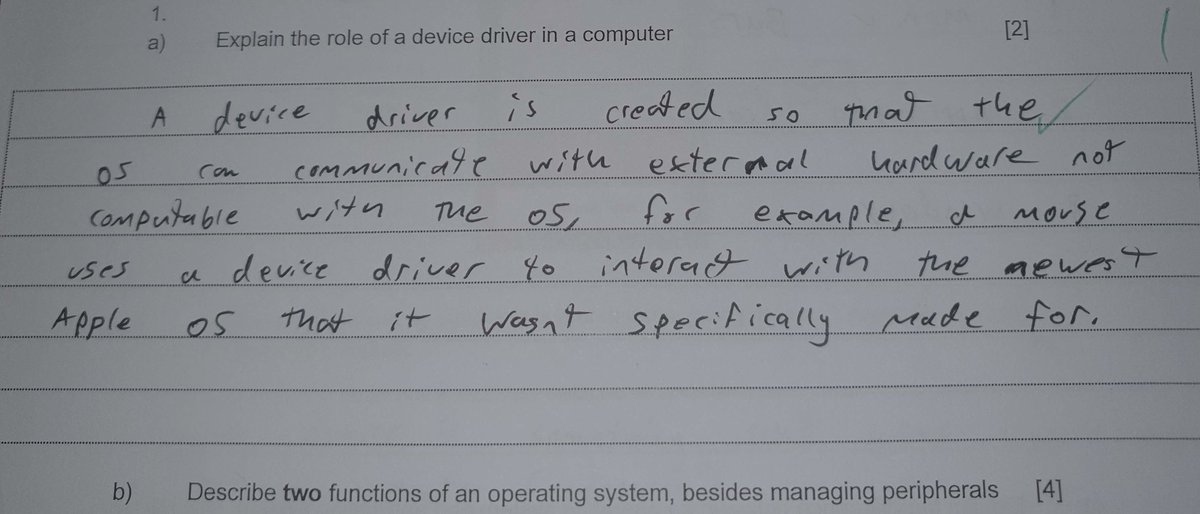 1.
a) Explain the role of a device driver in a computer [2]
A device driver is created so that the
OS can communicate with external hardware not
computable with the OS, for example, a mouse
uses a device driver to interact with the newest
Apple OS that it wasnt specifically made for.
b) Describe two functions of an operating system, besides managing peripherals [4]